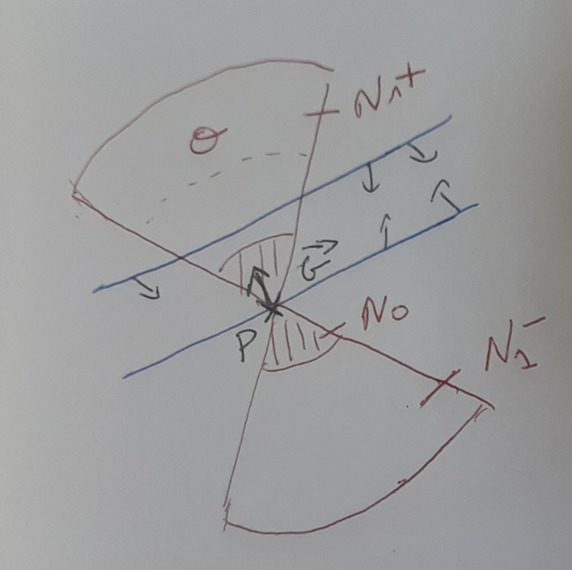 N₁⁺
θ
G⃗
P
N₀
N₁⁻